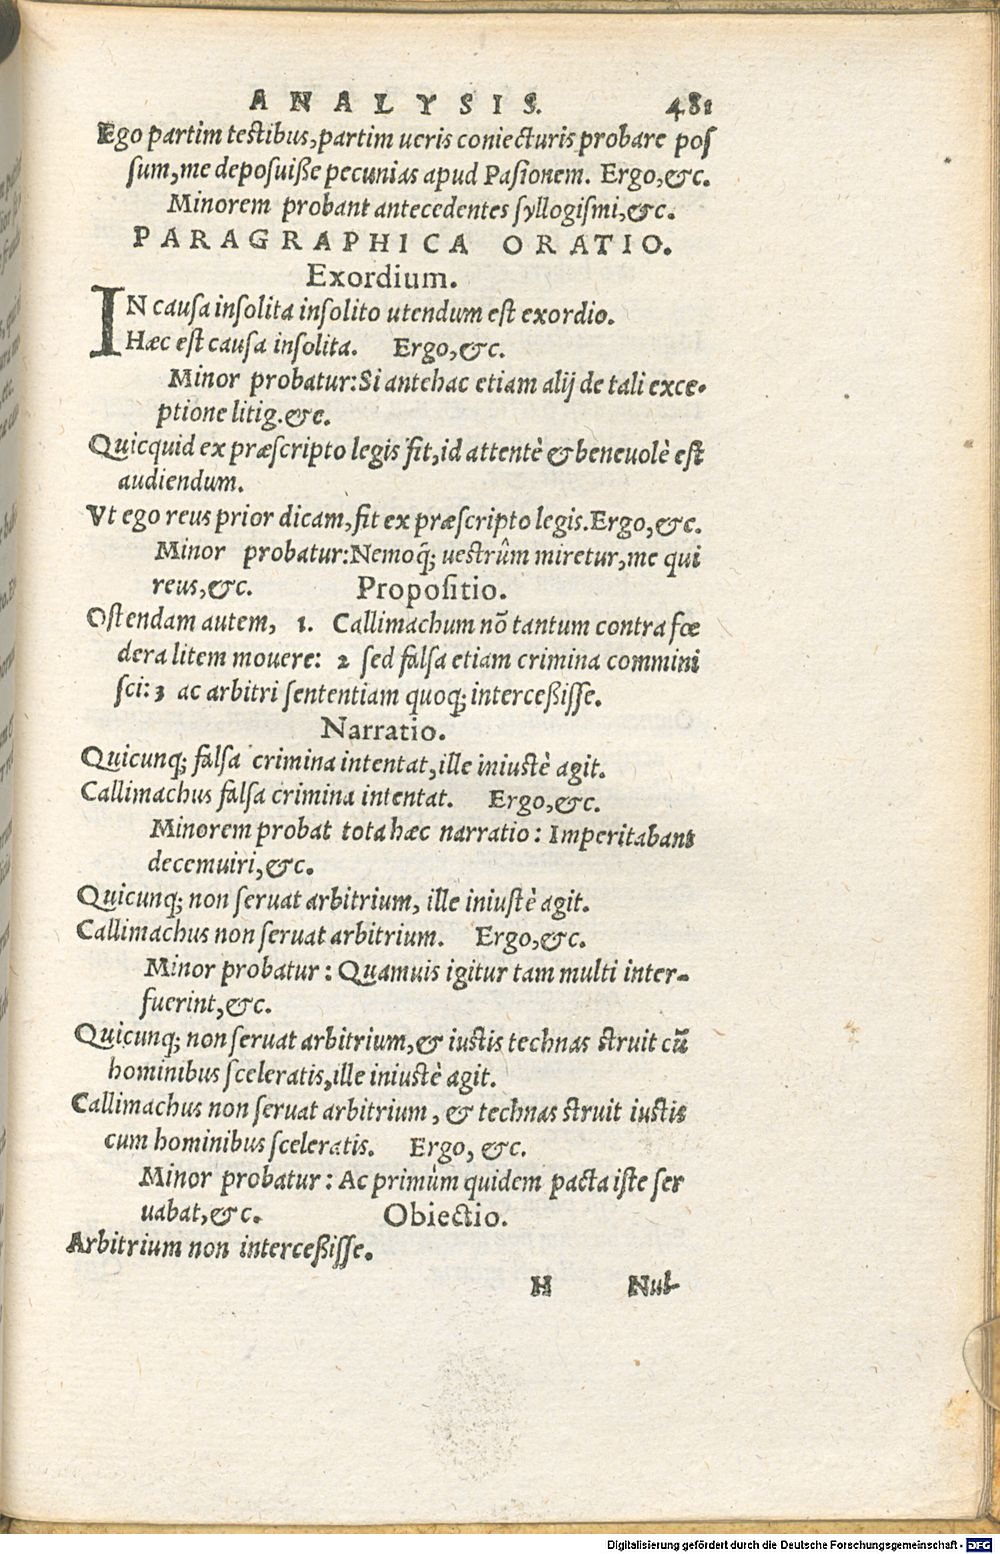 ANALYSIS. 481
Ego partim testibus, partim ueris coniecturis probare poſ
ſum, me depoſuiße pecunias apud Paſionem. Ergo, &c.
Minorem probant antecedentes ſyllogiſmi, &c.
PARAGRAPHICA ORATIO.
Exordium.
IN cauſa inſolita inſolito utendum eſt exordio.
Hæc eſt cauſa inſolita. Ergo, &c.
Minor probatur: Si antehac etiam alij de tali exce-
ptione litig. &c.
Quicquid ex præſcripto legis fit, id attentè & beneuolè eſt
audiendum.
Vt ego reus prior dicam, fit ex præſcripto legis. Ergo, &c.
Minor probatur: Nemoq; ueſtrûm miretur, me qui
reus, &c. Propoſitio.
Oſtendam autem, 1. Callimachum nõ tantum contra fœ
dera litem mouere: 2 ſed falſa etiam crimina commini
ſci: 3 ac arbitri ſententiam quoq; interceßiſſe.
Narratio.
Quicunq; falſa crimina intentat, ille iniuſtè agit.
Callimachus falſa crimina intentat. Ergo, &c.
Minorem probat tota hæc narratio: Imperitabant
decemuiri, &c.
Quicunq; non ſeruat arbitrium, ille iniuſtè agit.
Callimachus non ſeruat arbitrium. Ergo, &c.
Minor probatur: Quamuis igitur tam multi inter-
fuerint, &c.
Quicunq; non ſeruat arbitrium, & iuſtis technas ſtruit cũ
hominibus ſceleratis, ille iniuſtè agit.
Callimachus non ſeruat arbitrium, & technas ſtruit iuſtis
cum hominibus ſceleratis. Ergo, &c.
Minor probatur: Ac primùm quidem pacta iſte ſer
uabat, &c. Obiectio.
Arbitrium non interceßiſſe.
H Nul-
Digitalisierung gefördert durch die Deutsche Forschungsgemeinschaft - DFG